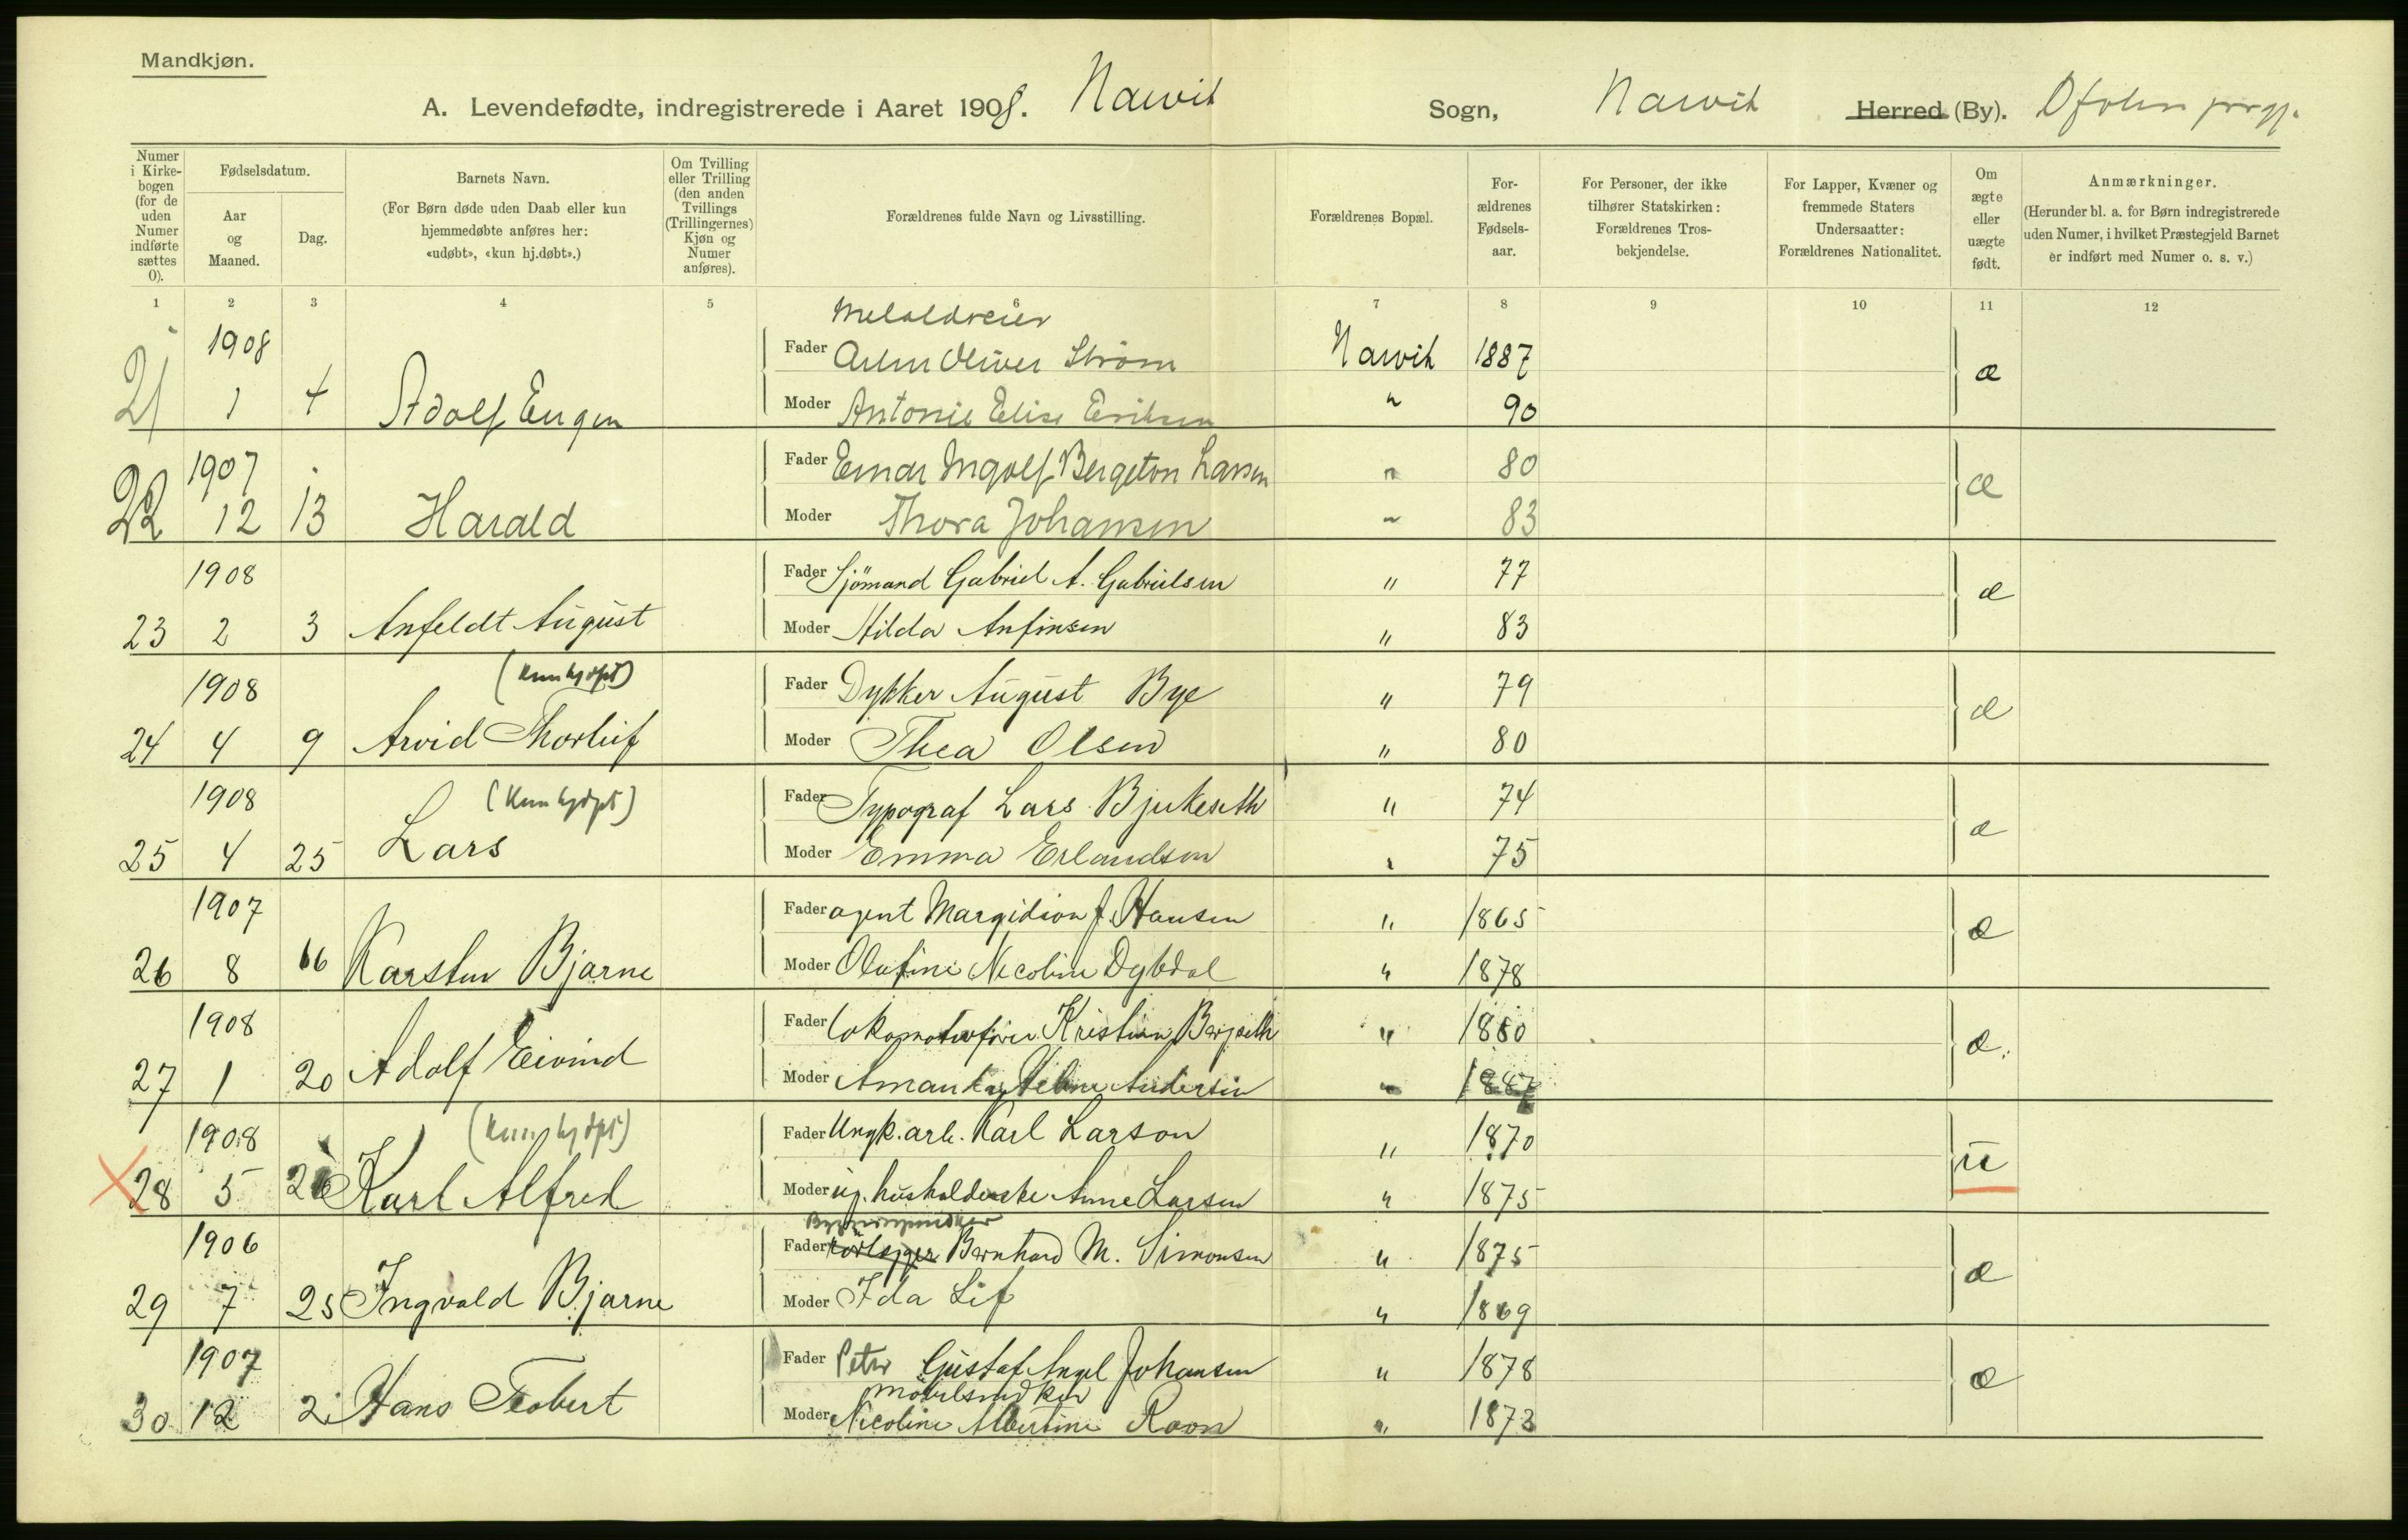 Mandkjøn.
A. Levendefødte, indregistrerede i Aaret 1908. Narvik Sogn, Narvik Herred (By). Ofoten prgj.
Numer i Kirkebogen (for de uden Numer indførte sættes 0).
Fødselsdatum.
Aar og Maaned.
Dag.
Barnets Navn.
(For Børn døde uden Daab eller kun hjemmedøbte anføres her: «udøbt», «kun hj.døbt».)
Om Tvilling eller Trilling (den anden Tvillings (Trillingernes) Kjøn og Numer anføres).
Forældrenes fulde Navn og Livsstilling.
Forældrenes Bopæl.
Forældrenes Fødselsaar.
For Personer, der ikke tilhører Statskirken: Forældrenes Trosbekjendelse.
For Lapper, Kvæner og fremmede Staters Undersaatter: Forældrenes Nationalitet.
Om ægte eller uægte født.
Anmærkninger.
(Herunder bl. a. for Børn indregistrerede uden Numer, i hvilket Præstegjeld Barnet er indført med Numer o. s. v.)
1 2 3 4 5 6 7 8 9 10 11 12
1908
Fader Oliver Strøm Narvik 1887
21 1 4 Adolf Eugen æ
Moder Antonie Elise Eriksen " 90
1907
Fader Einar Ingolf Bergeton Larsen " 80
22 12 13 Harald æ
Moder Thora Johansen " 83
1908
Fader Sjömand Gabriel A. Gabrielsen " 77
23 2 3 Anfeldt August æ
Moder Hilda Anfinsen " 83
1908 (kun hjdpt)
Fader Dykker August Bye " 79
24 4 9 Arvid Thorleif æ
Moder Thea Olsen " 80
1908 (kun hjdpt)
Fader Typograf Lars Bjerkeseth " 74
25 4 25 Lars æ
Moder Emma Erlandsen " 75
1907
Fader agent Margido J. Hansen " 1865
26 8 16 Karsten Bjarne æ
Moder Olufine Nicoline Dybdal " 1878
1908
Fader lokomotivfører Kristian Bergseth " 1880
27 1 20 Adolf Eivind æ.
Moder Amanda Andersen "
1908 (kun hjdpt)
Fader Ungk. arb. Karl Larson " 1870
28 5 Karl Alfred u
Moder ug. husholderske Anne Larsen " 1875
1906
Fader Bernhard M. Simonsen " 1875
29 7 25 Ingvald Bjarne æ
Moder Ida Lif " 1869
1907
Fader Peter Gustaf Angel Johansen " 1878
møbelsnedker
30 12 2 Hans Teobert æ
Moder Nicoline Albertine Roon " 1873